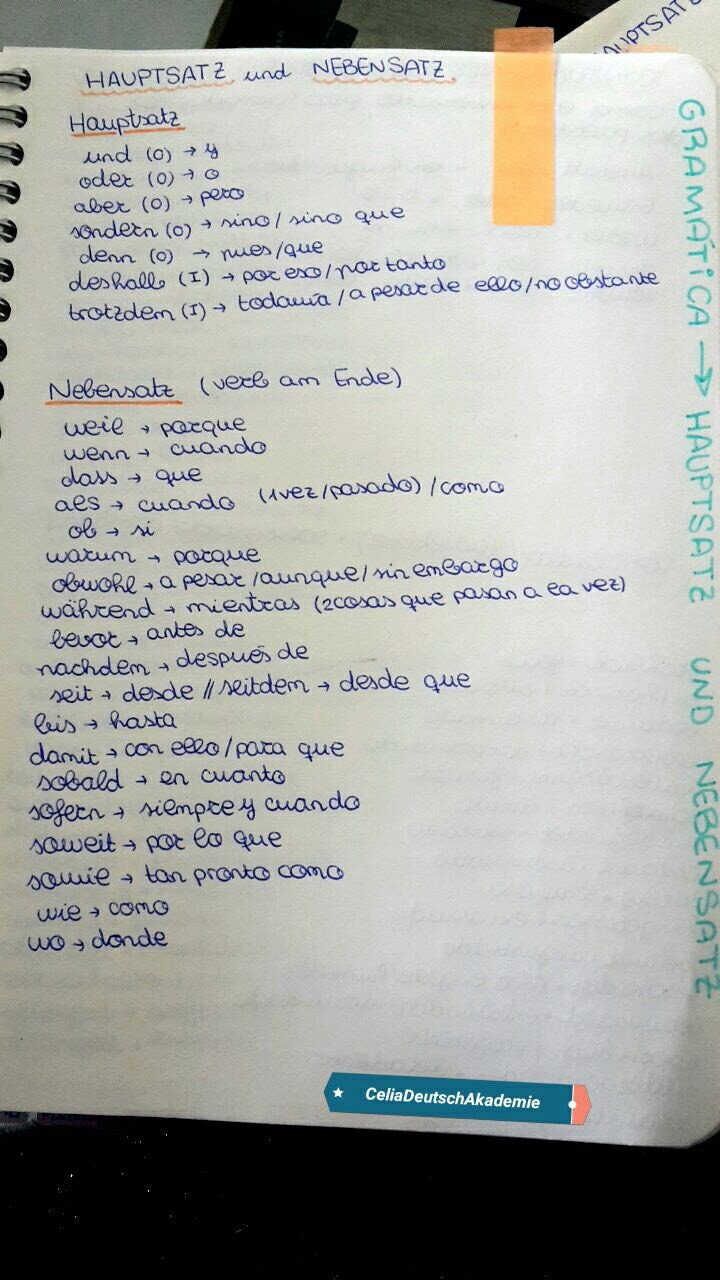 HAUPTSATZ und NEBENSATZ
Hauptsatz
und (0) → y
oder (0) → o
aber (0) → pero
sondern (0) → sino / sino que
denn (0) → pues/que
deshalb (I) → por eso/por tanto
trotzdem (I) → todavía / a pesar de ello/no obstante
Nebensatz (verb am Ende)
weil → porque
wenn → cuando
dass → que
als → cuando (1vez/pasado) / como
ob → si
warum → porque
obwohl → a pesar /aunque/ sin embargo
während → mientras (2cosas que pasan a la vez)
bevor → antes de
nachdem → después de
seit → desde // seitdem → desde que
bis → hasta
damit → con ello/para que
sobald → en cuanto
sofern → siempre y cuando
soweit → por lo que
sowie → tan pronto como
wie → como
wo → donde
GRAMÁTICA → HAUPTSATZ UND NEBENSATZ
CeliaDeutschAkademie